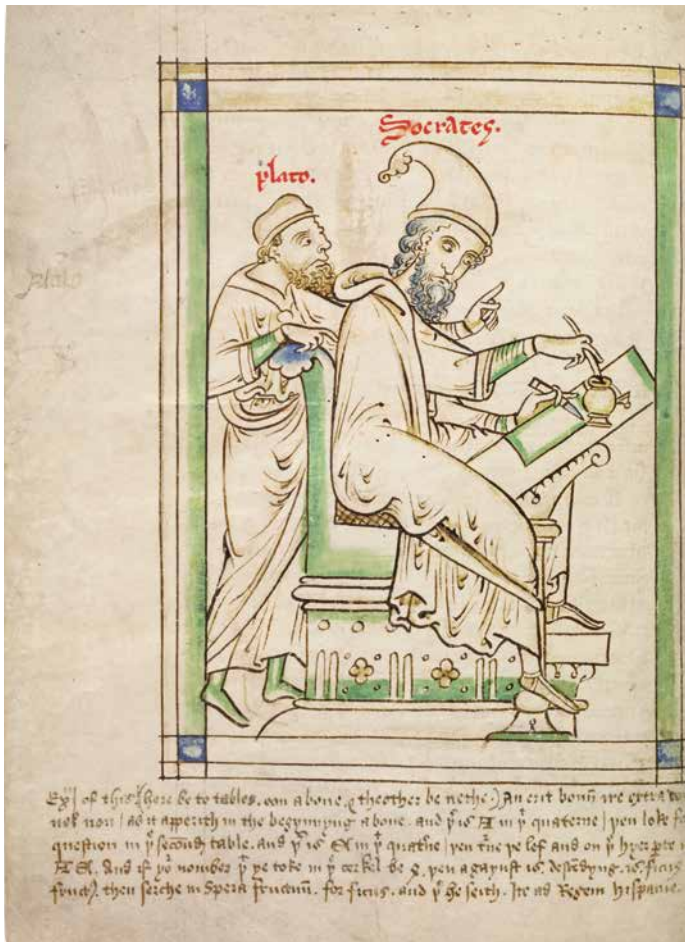 Socrates.
plato.
plato
Exl of this (here be to tables. oon aboue. & theother be nethe.) An erit bonū ire extra
uel non / as it apperith in the begynnyng aboue. and yͭ is A in yͤ quaterne / yen loke
question in yͤ second table. and yͭ is in yͤ quat̄ne / yen t̄ne ye lef and on yͤ hyer
And if yoͬ nomber yͭ ye toke in yͤ cerkel be 9. yen agaynst is. descēdyng. is. ficus
fruct. then serche in Spera fructuū. for ficus. and yͬ he seith. Ite ad Regem hispanie.